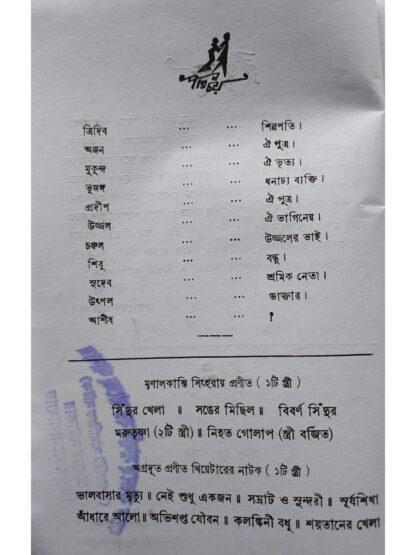 পরিচয়
ত্রিদিব ... ... শিল্পপতি।
অঞ্জন ... ... ঐ পুত্র।
মুকুন্দ ... ... ঐ ভৃত্য।
ভুজঙ্গ ... ... ধনাঢ্য ব্যক্তি।
প্রদীপ ... ... ঐ পুত্র।
উজ্জল ... ... ঐ ভাগিনেয়।
চঞ্চল ... ... উজ্জলের ভাই।
শিবু ... ... বন্ধু।
সুদেব ... ... শ্রমিক নেতা।
উৎপল ... ... ডাক্তার।
আশীষ ... ... ?
মৃণালকান্তি সিংহরায় প্রণীত ( ১টি স্ত্রী )
সিঁদুর খেলা ॥ সঙের মিছিল ॥ বিবর্ণ সিঁদুর
মরুতৃষ্ণা (২টি স্ত্রী) ॥ নিহত গোলাপ (স্ত্রী বর্জিত)
অগ্রদূত প্রণীত থিয়েটারের নাটক ( ১টি স্ত্রী )
ভালবাসার মৃত্যু ॥ নেই শুধু একজন ॥ সম্রাট ও সুন্দরী ॥ সূর্যশিখা
আঁধারে আলো ॥ অভিশপ্ত যৌবন ॥ কলঙ্কিনী বধূ ॥ শয়তানের খেলা